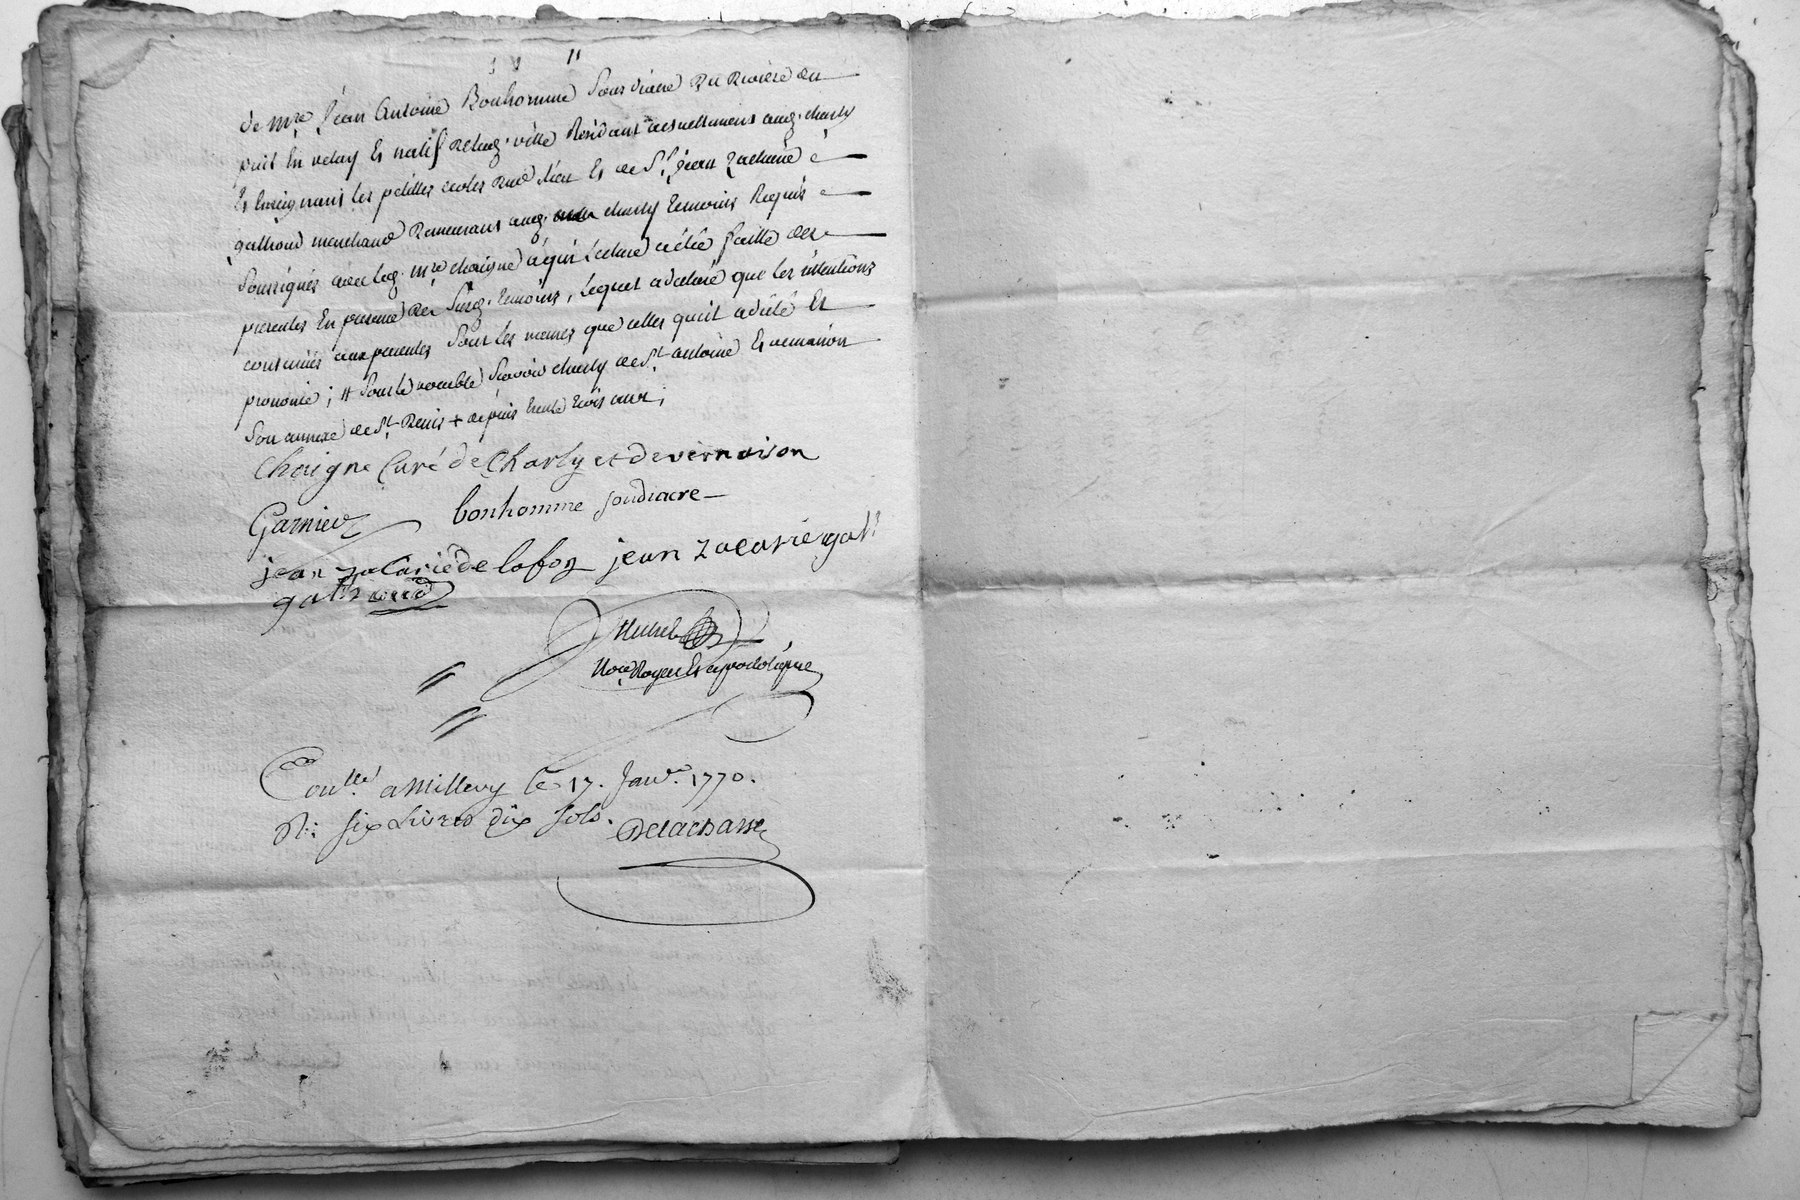 de mre Jean Antoine Bonhomme Sousdiacre du diocèse du
puis en velay Et natif de lad. ville Residant actuellement aud. charly
Et Enseignant les petittes ecoles dud. lieu Et de Sr. Jean Zacharie
gathoud marchand Demeurant aud. charly temoins Requis
Soussignés avec led. mre choigne à qui lecture a été faitte des
presentes En presence des Susd. temoins, lequel a declaré que les intentions
contenües aux presentes Sont les memes que celles qu'il a dicté Et
prononcé ; # Sous le vocable Scavoir charly de St. antoine Et vernaison
Son annexe de St. Denis + depuis trente trois ans ;
Choigne Curé de Charly et de vernaison
Garnier bonhomme soudiacre
jean zacarie de lafon jean zacarie gat
gathoud
Nore. Royal Et apostolique
Conllé a Millery le 17. Janv. 1770.
R: six Livres dix sols. Delachasse